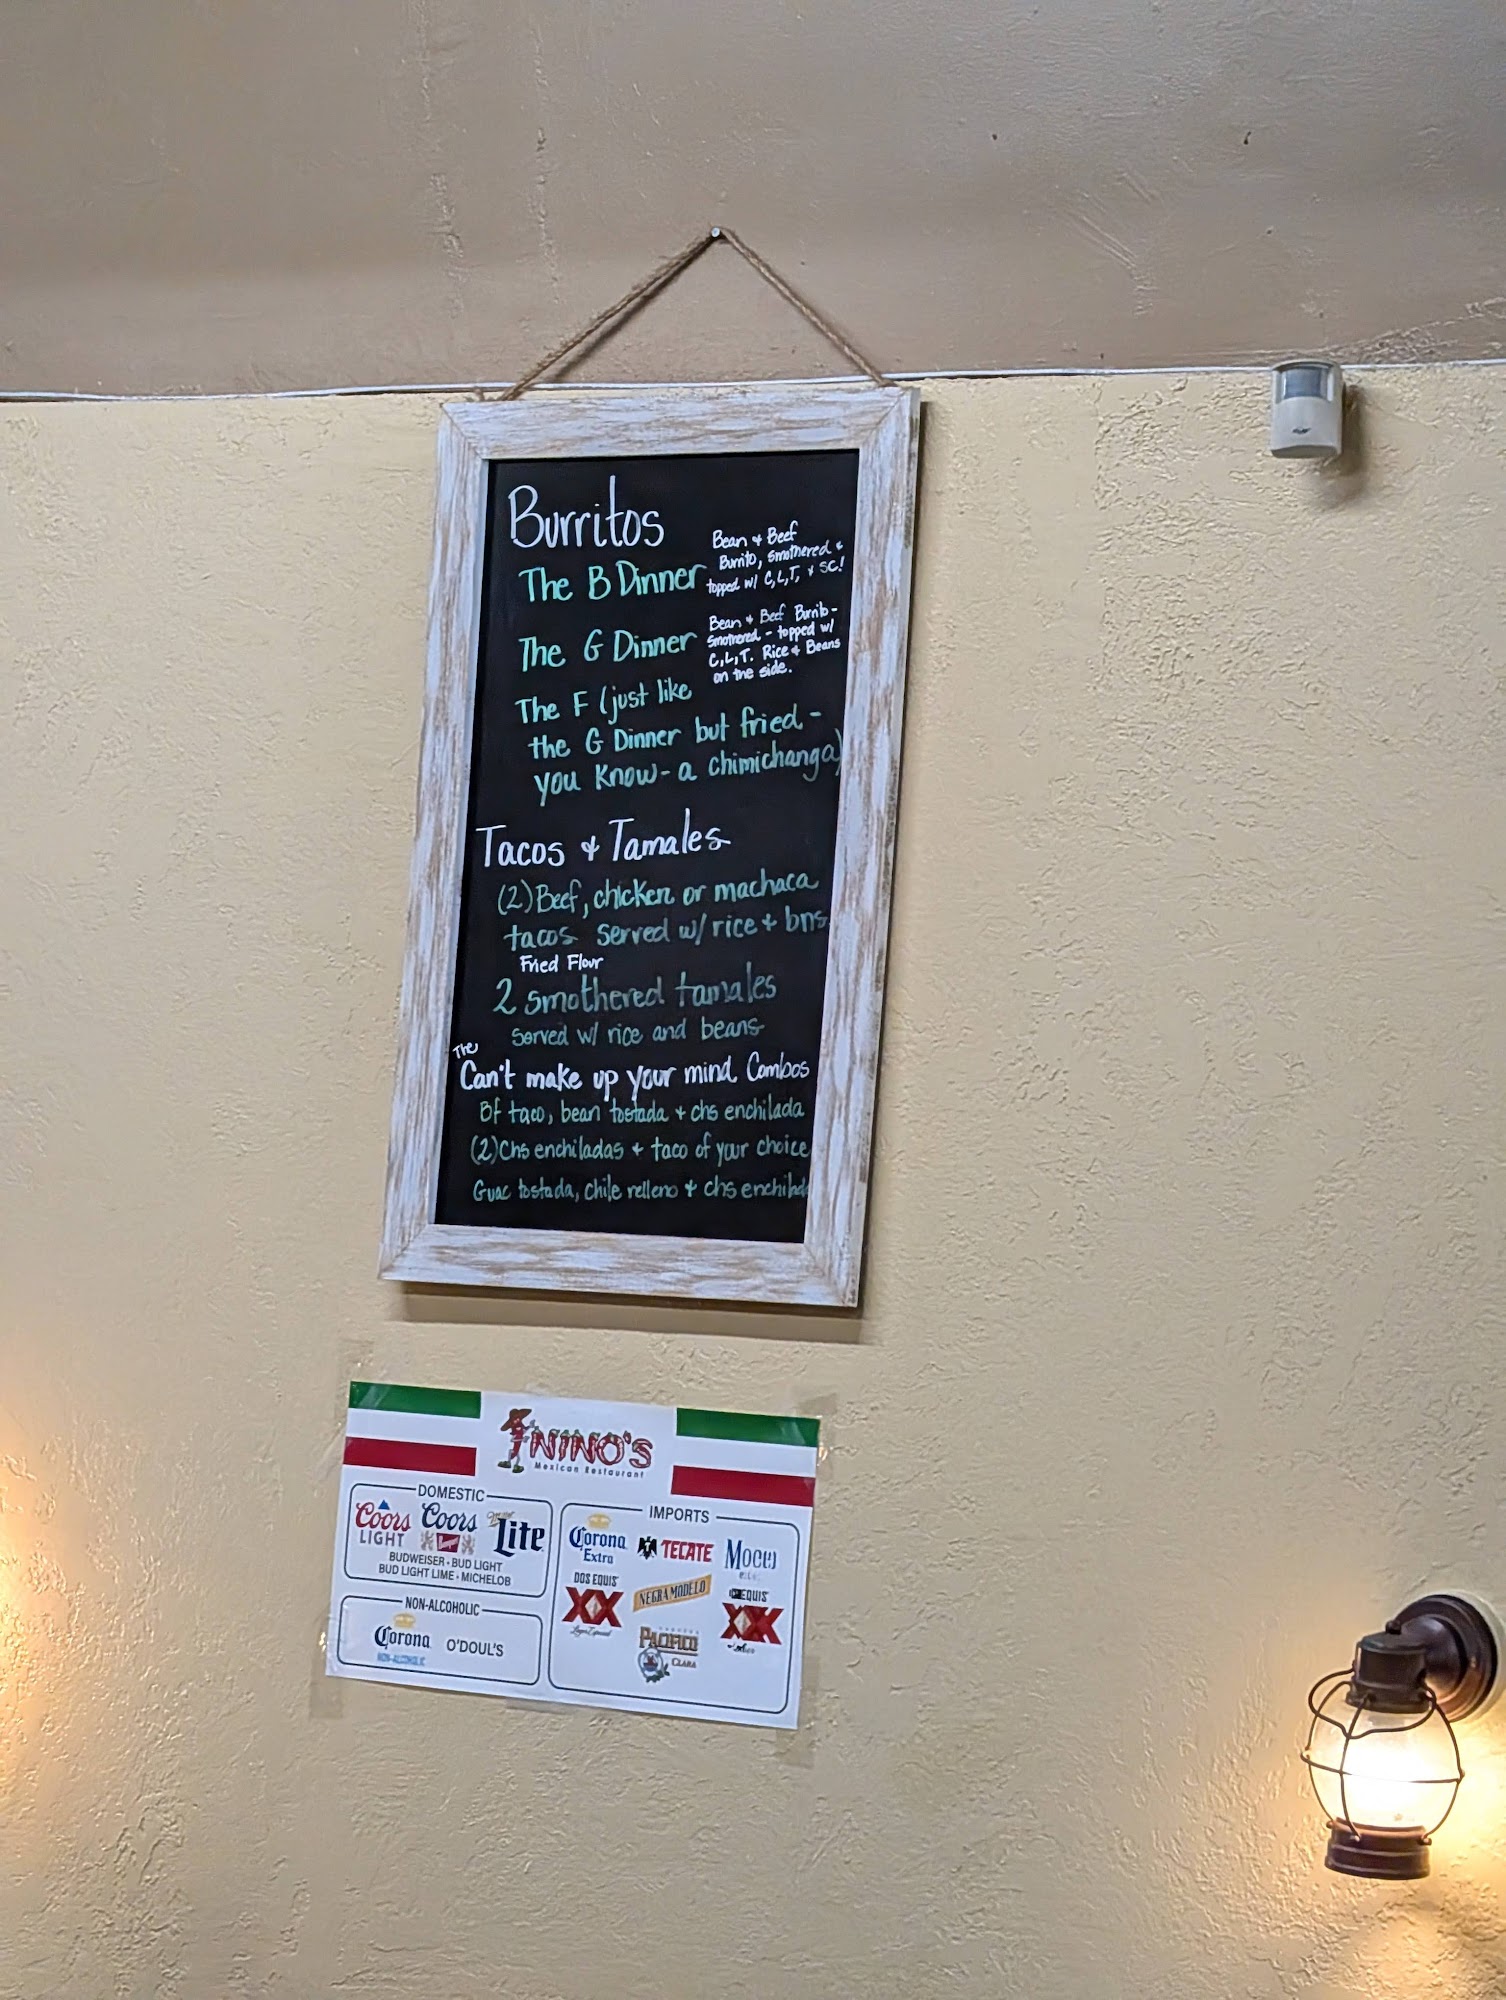 Burritos
The B Dinner
Bean & Beef
Burrito, smothered &
topped w/ C, L, T, & SC!
The G Dinner
Bean & Beef Burrito-
Smothered - topped w/
C, L, T. Rice & Beans
on the side.
The F (just like
the G Dinner but fried -
you know - a chimichanga)
Tacos & Tamales
(2) Beef, chicken or machaca
tacos served w/ rice & bns
Fried Flour
2 smothered tamales
served w/ rice and beans
The
Can't make up your mind Combos
Bf taco, bean tostada & chs enchilada
(2) Chs enchiladas & taco of your choice
Guac tostada, chile relleno & chs enchilada
NINO'S
Mexican Restaurant
DOMESTIC
Coors LIGHT
Coors Banquet
Miller Lite
BUDWEISER • BUD LIGHT
BUD LIGHT LIME • MICHELOB
NON-ALCOHOLIC
Corona NON-ALCOHOLIC
O'DOUL'S
IMPORTS
Corona Extra
TECATE
DOS EQUIS XX Lager Especial
NEGRA MODELO
EQUIS XX
PACIFICO CLARA